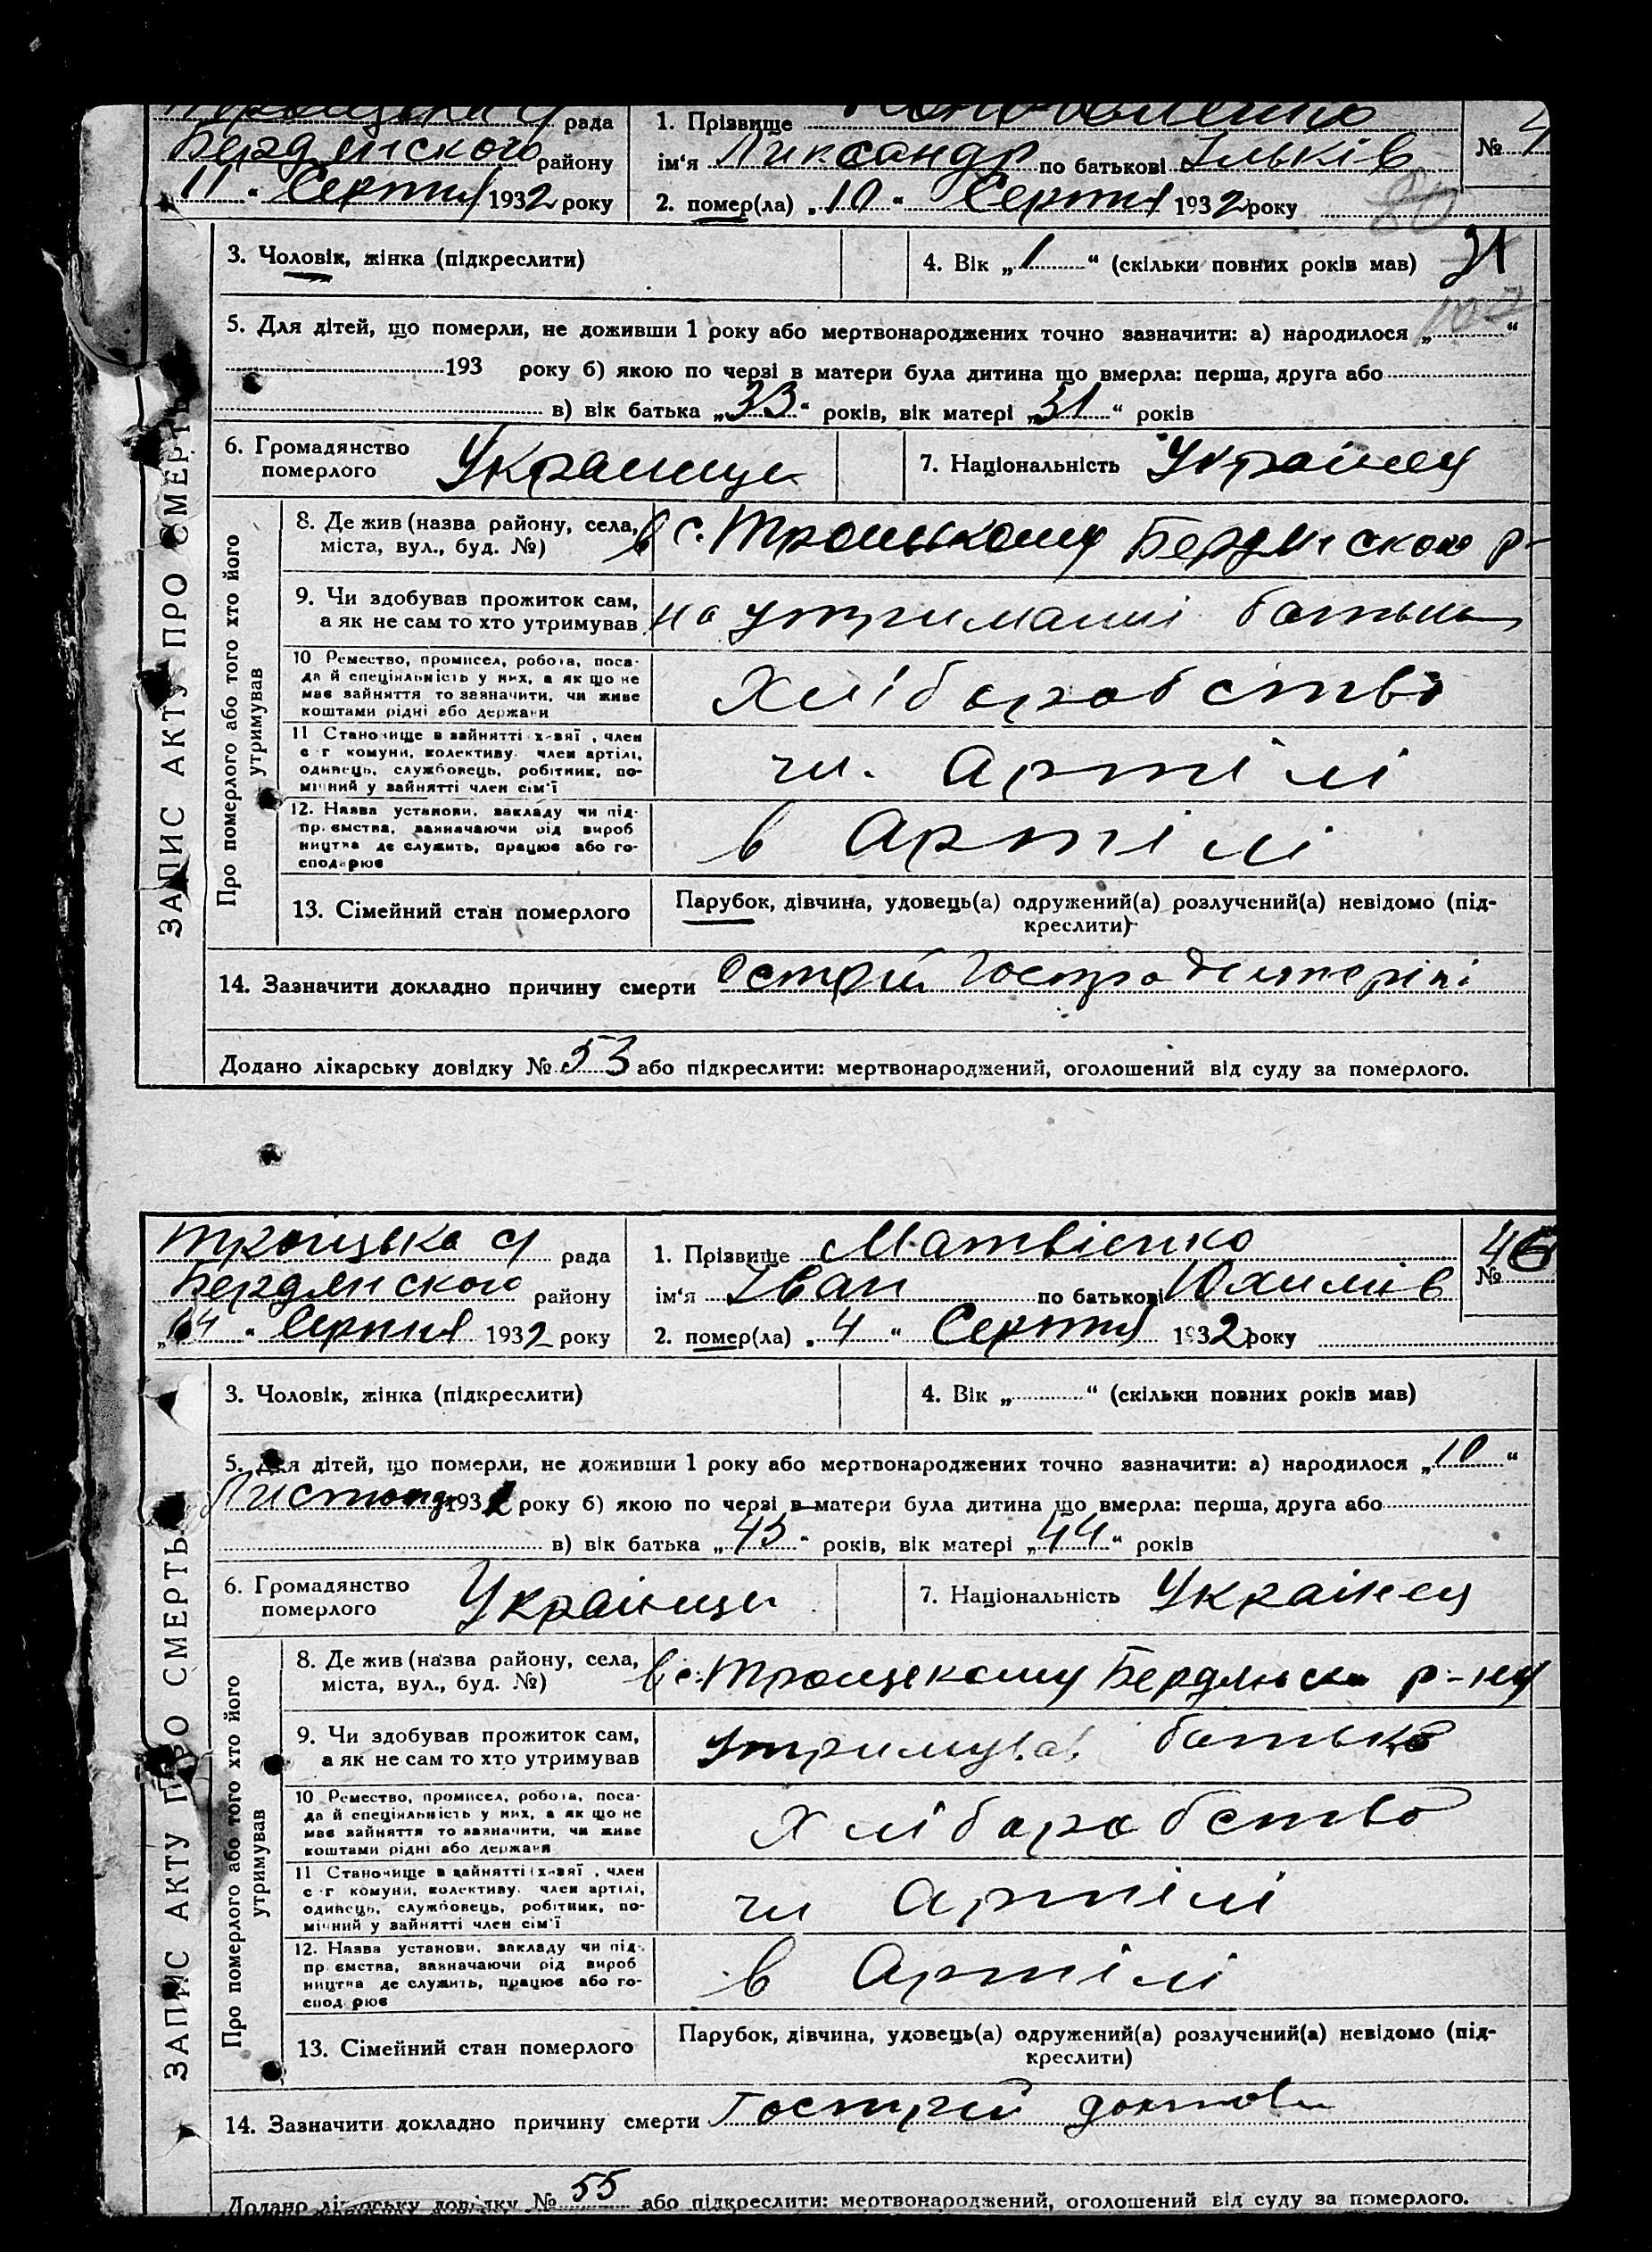 рада
Бердянского району
„11“ Серпня 1932 року
1. Прізвище
ім‘я Ликсандр по батькові Ільків
2. помер(ла) „10“ Серпня 1932 року
№ 4
3. Чоловік, жінка (підкреслити)
4. Вік „1“ (скільки повних років мав)
21
5. Для дітей, що померли, не доживши 1 року або мертвонароджених точно зазначити: а) народилося „ “
193 року б) якою по черзі в матери була дитина що вмерла: перша, друга або
в) вік батька „33“ років, вік матері „31“ років
6. Громадянство
померлого
Украинци
7. Національність Українец
ЗАПИС АКТУ ПРО СМЕРТЬ
Про померлого або того хто його
утримував
8. Де жив (назва району, села,
міста, вул., буд. №)
в с. Троцькому Бердянского р-
9. Чи здобував прожиток сам,
а як не сам то хто утримував
на утриманні батька
10 Ремество, промисел, робота, поса-
да й спеціяльність у них, а як що не
має зайняття то зазначити, чи живе
коштами рідні або держави
Хліборобство
11 Становище в зайнятті х-зяї, член
с г комуни, колективу. член артілі,
одинець, службовець, робітник, по-
мічний у зайнятті член сім‘ї
чл. Артілі
12. Назва установи, закладу чи під-
пр ємства, зазначаючи рід вироб
ництва де служить, працює або го-
сподарює
в Артілі
13. Сімейний стан померлого
Парубок, дівчина, удовець(а) одружений(а) розлучений(а) невідомо (під-
креслити)
14. Зазначити докладно причину смерти Острій
Додано лікарську довідку № 53 або підкреслити: мертвонароджений, оголошений від суду за померлого.
Троіцька с/ рада
Бердянского району
„14“ Серпня 1932 року
1. Прізвище Матвієнко
ім‘я Іван по батькові Юхимів
2. помер(ла) „4“ Серпня 1932 року
№ 46
3. Чоловік, жінка (підкреслити)
4. Вік „ “ (скільки повних років мав)
5. Для дітей, що померли, не доживши 1 року або мертвонароджених точно зазначити: а) народилося „10“
Листопад 193 року б) якою по черзі в матери була дитина що вмерла: перша, друга або
в) вік батька „45“ років, вік матері „44“ років
6. Громадянство
померлого
Українци
7. Національність Українец
ЗАПИС АКТУ ПРО СМЕРТЬ
Про померлого або того хто його
утримував
8. Де жив (назва району, села,
міста, вул., буд. №)
в с. Троицекому Бердянськ р-ну
9. Чи здобував прожиток сам,
а як не сам то хто утримував
утримував батько
10 Ремество, промисел, робота, поса-
да й спеціяльність у них, а як що не
має зайняття то зазначити, чи живе
коштами рідні або держави
Хліборобство
11 Становище в зайнятті х-зяї, член
с г комуни, колективу. член артілі,
одинець, службовець, робітник, по-
мічний у зайнятті член сім‘ї
чл Артілі
12. Назва установи, закладу чи під-
пр ємства, зазначаючи рід вироб
ництва де служить, працює або го-
сподарює
в Артілі
13. Сімейний стан померлого
Парубок, дівчина, удовець(а) одружений(а) розлучений(а) невідомо (під-
креслити)
14. Зазначити докладно причину смерти Гострій
Додано лікарську довідку № 55 або підкреслити: мертвонароджений, оголошений від суду за померлого.